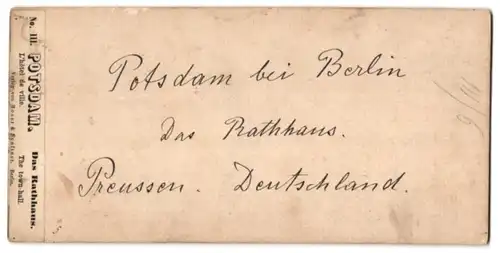 No. III. POTSDAM. Das Rathhaus.
L'hôtel de ville. The town-hall.
Berlin.
Potsdam bei Berlin
Das Rathhaus.
Preussen. Deutschland.